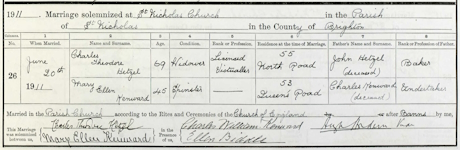 1911. Marriage solemnized at St Nicholas Church in the Parish
of St Nicholas in the County of Brighton
1 2 3 4 5 6 7 8
No. When Married. Name and Surname. Age. Condition. Rank or Profession. Residence at the time of Marriage. Father's Name and Surname. Rank or Profession of Father.
26 June 20th 1911 Charles Theodore Hetzel 69 Widower Licensed Victualler 55 North Road John Hetzel (deceased) Baker
Mary Ellen Kenward 45 Spinster 53 Queens Road Charles Kenward (deceased) Undertaker
Married in the Parish Church according to the Rites and Ceremonies of the Church of England after Banns by me,
This Marriage was solemnized between us, Charles Theodore Hetzel
Mary Ellen Kenward
in the Presence of us, Charles William Kenward
Ellen